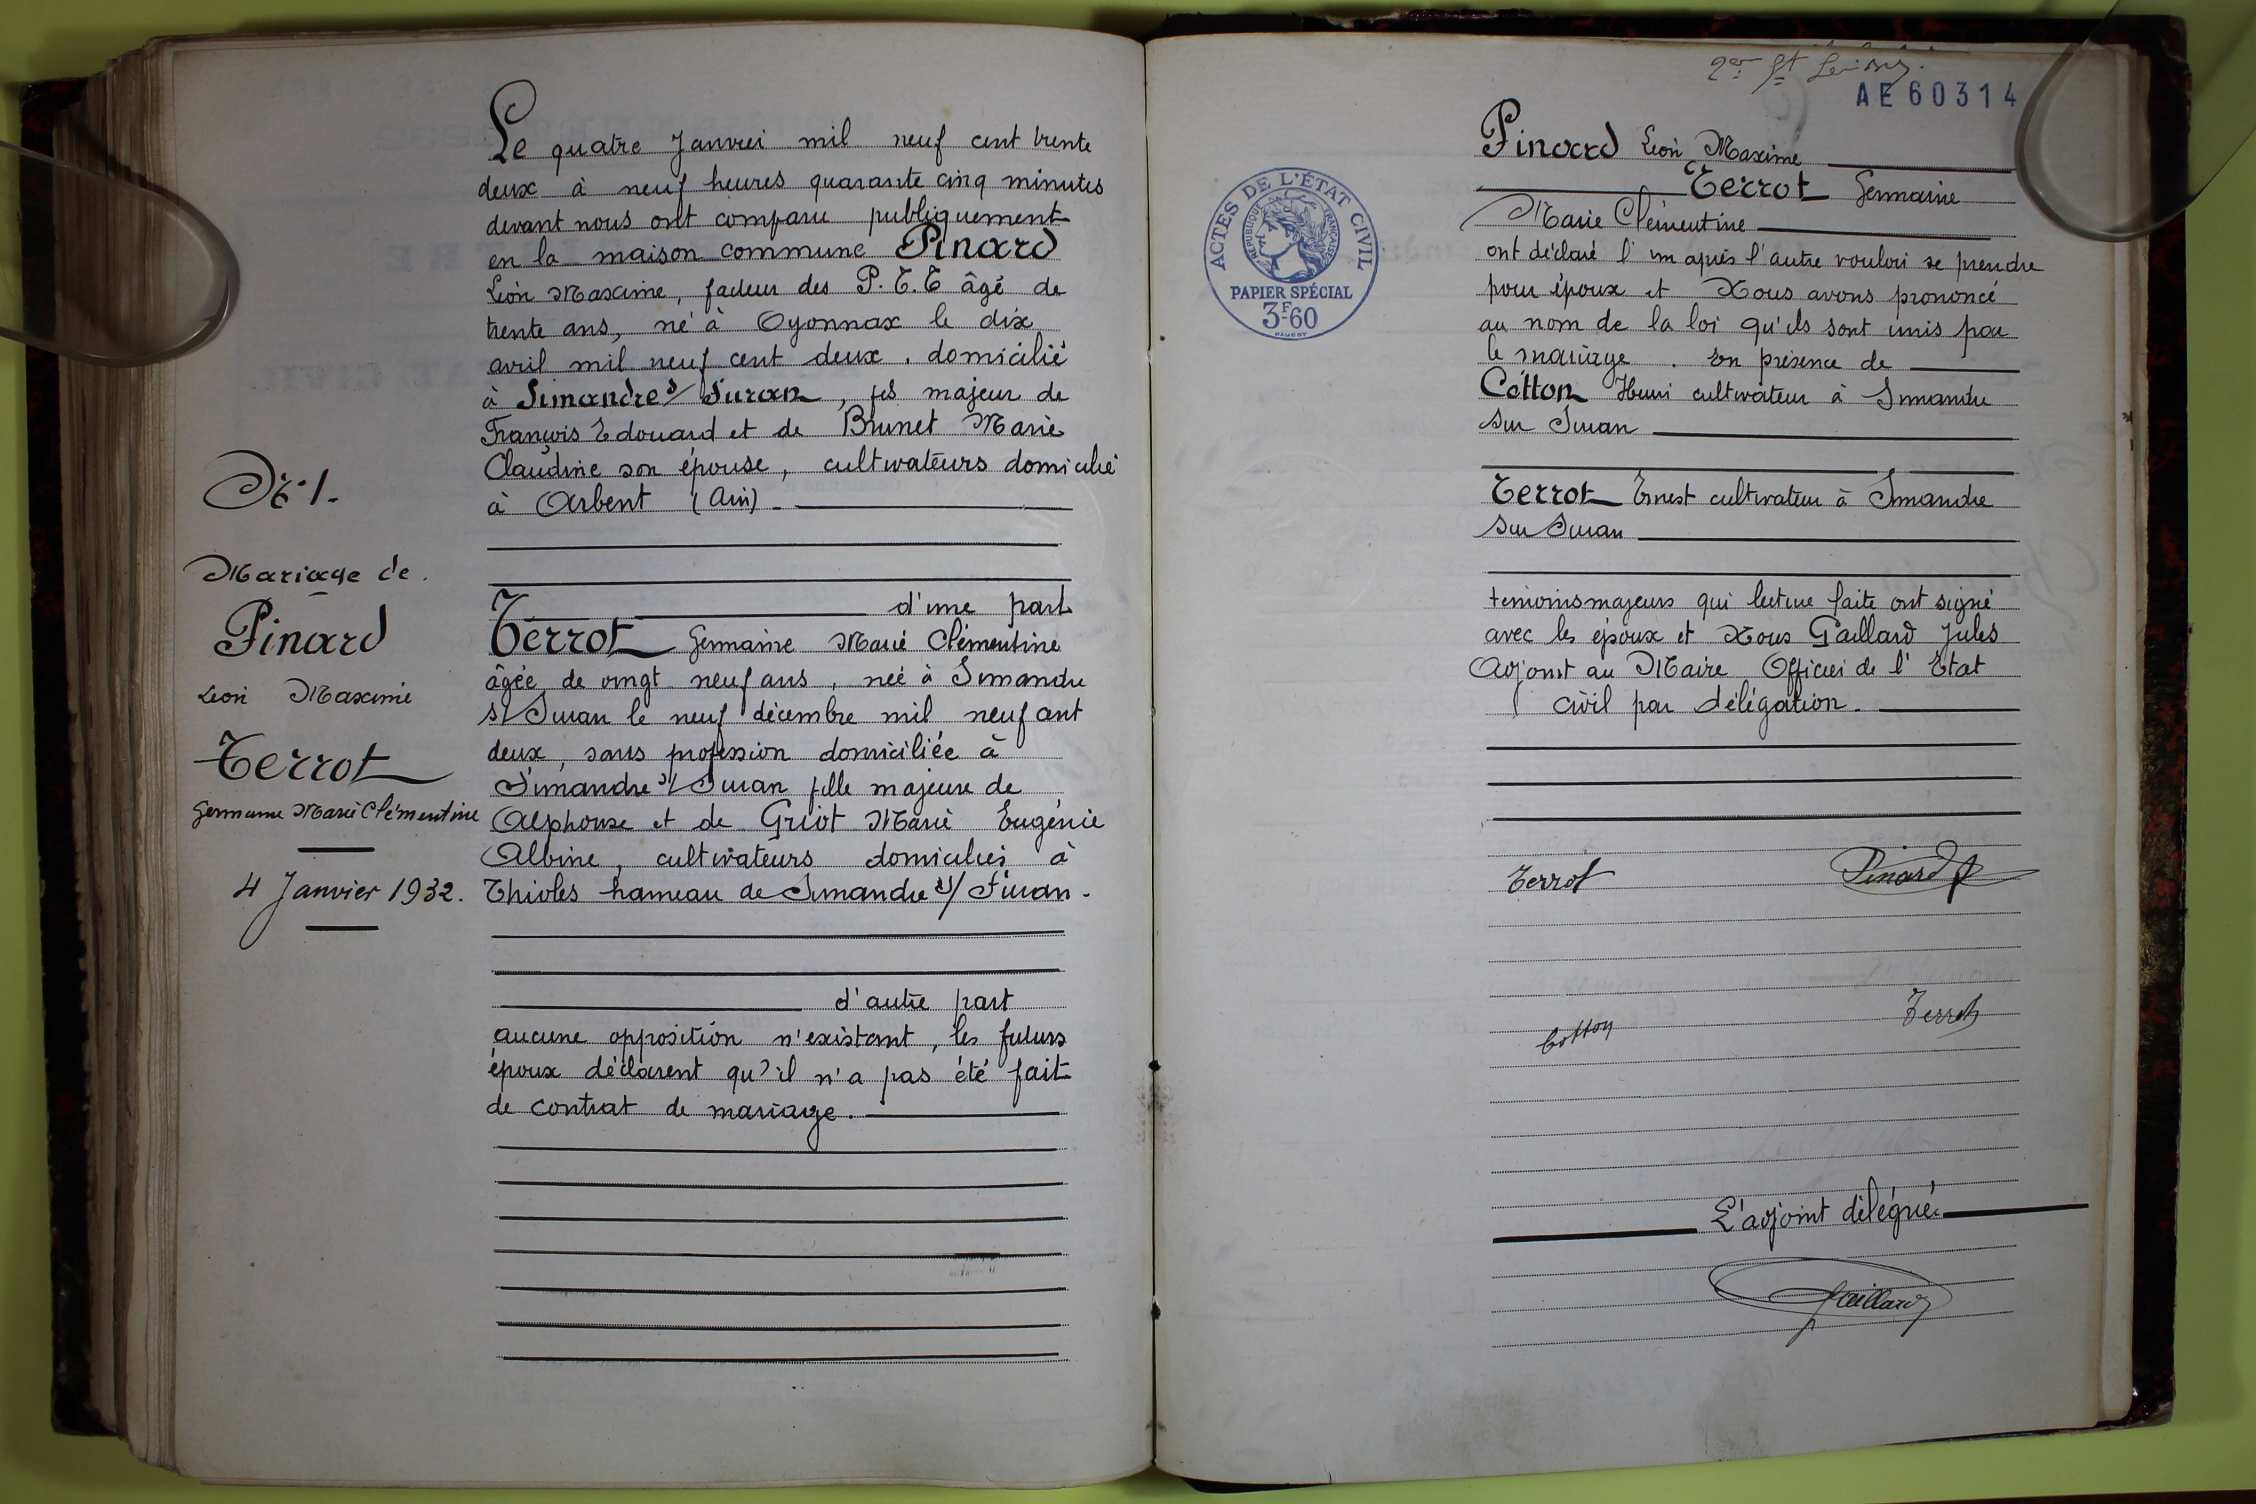 Le quatre Janvier mil neuf cent trente
deux à neuf heures quarante cinq minutes
devant nous ont comparu publiquement
en la maison commune Pinard
Léon Maxime, facteur des P.T.T âgé de
trente ans, né à Oyonnax le dix
avril mil neuf cent deux. domicilié
à Simandre s/ Suran, fils majeur de
François Edouard et de Brunet Marie
Claudine son épouse, cultivateurs domicilié
à Arbent (Ain)
d'une part
Terrot Germaine Marie Clémentine
âgée de vingt neuf ans, née à Simandre
s/ Suran le neuf décembre mil neuf cent
deux, sans profession domiciliée à
Simandre s/ Suran fille majeure de
Alphonse et de Griot Marie Eugénie
Albine, cultivateurs domiciliés à
Thioles hameau de Simandre s/ Suran.
d'autre part
aucune opposition n'existant, les futurs
époux déclarent qu'il n'a pas été fait
de contrat de mariage.
N° 1.
Mariage de.
Pinard
Léon Maxime
Terrot
Germaine Marie Clémentine
4 Janvier 1932.
AE 60314
ACTES DE L'ÉTAT CIVIL
RÉPUBLIQUE FRANÇAISE
PAPIER SPÉCIAL
3F60
Pinard Léon Maxime
Terrot Germaine
Marie Clémentine
ont déclaré l'un après l'autre vouloir se prendre
pour époux et Nous avons prononcé
au nom de la loi qu'ils sont unis par
le mariage. En présence de
Cotton Henri cultivateur à Simandre
sur Suran
Terrot Ernest cultivateur à Simandre
sur Suran
témoins majeurs qui lecture faite ont signé
avec les époux et Nous Gaillard Jules
Adjoint au Maire Officier de l'Etat
civil par délégation.
Terrot Pinard
Cotton Terrot
L'adjoint délégué.
Gaillard